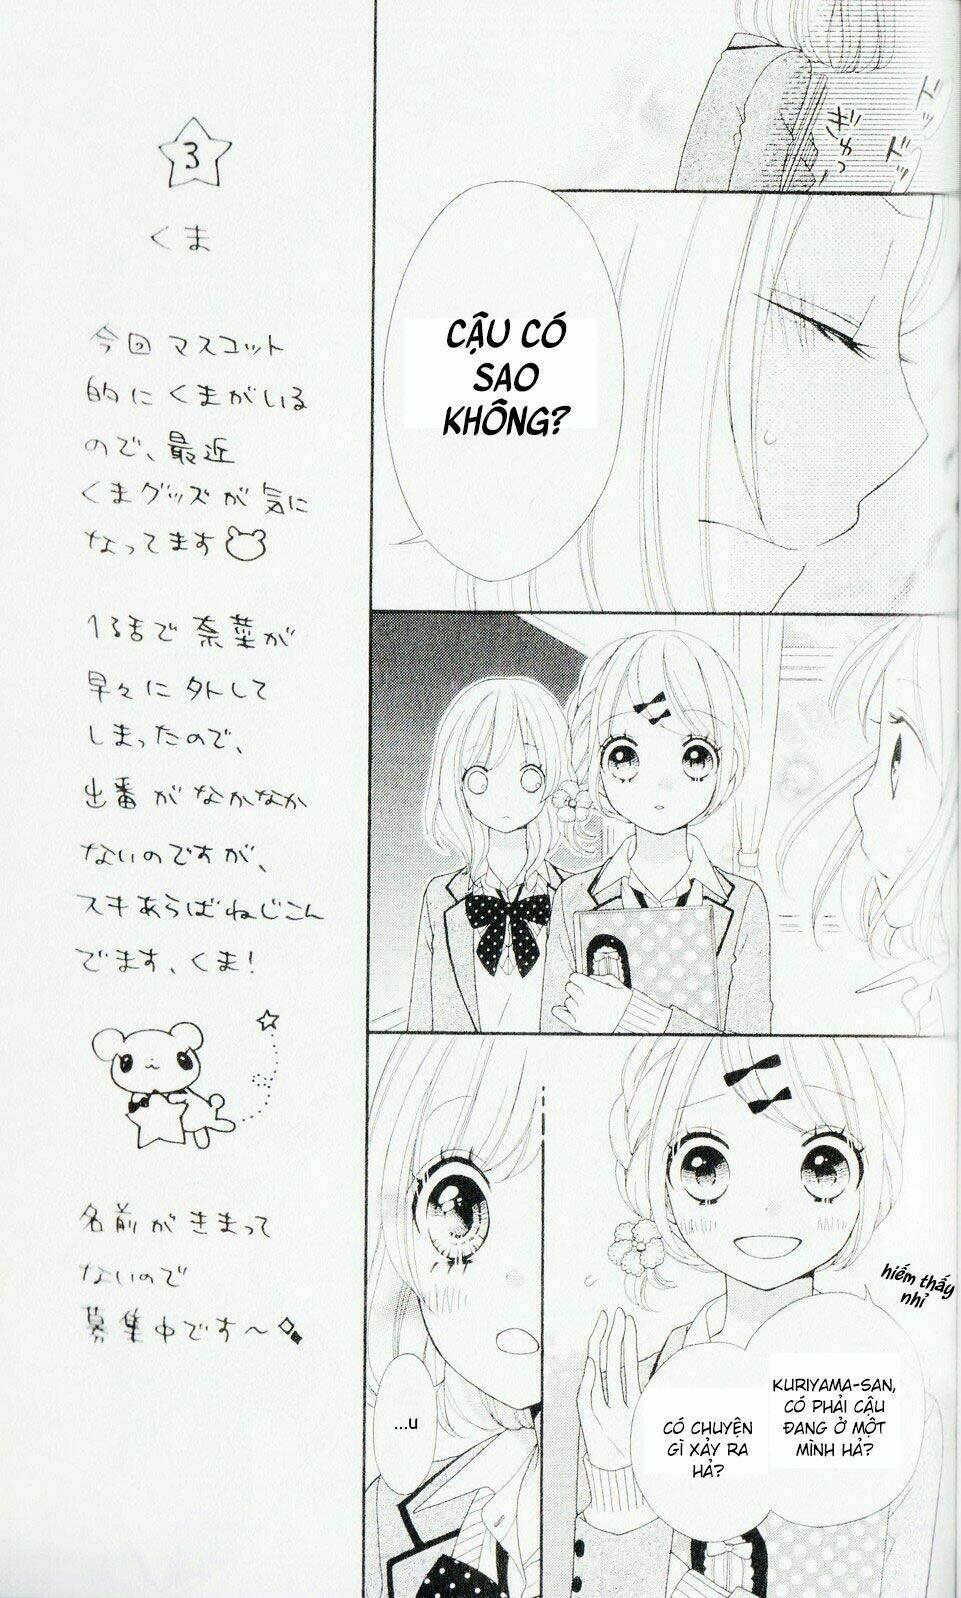 ズッ
ズッ
ぎゅっ
CẬU CÓ
SAO
KHÔNG?
hiếm thấy
nhỉ
KURIYAMA-SAN,
CÓ PHẢI CẬU
ĐANG Ở MỘT
MÌNH HẢ?
CÓ CHUYỆN
GÌ XẢY RA
HẢ?
...U
3
くま
今回マスコット
的にくまがいる
ので、最近
くまグッズが気に
なってます
1話で奈菜が
早々に外して
しまったので、
出番がなかなか
ないのですが、
スキあらばねじこん
でます、くま!
名前がきまって
ないので
募集中です〜